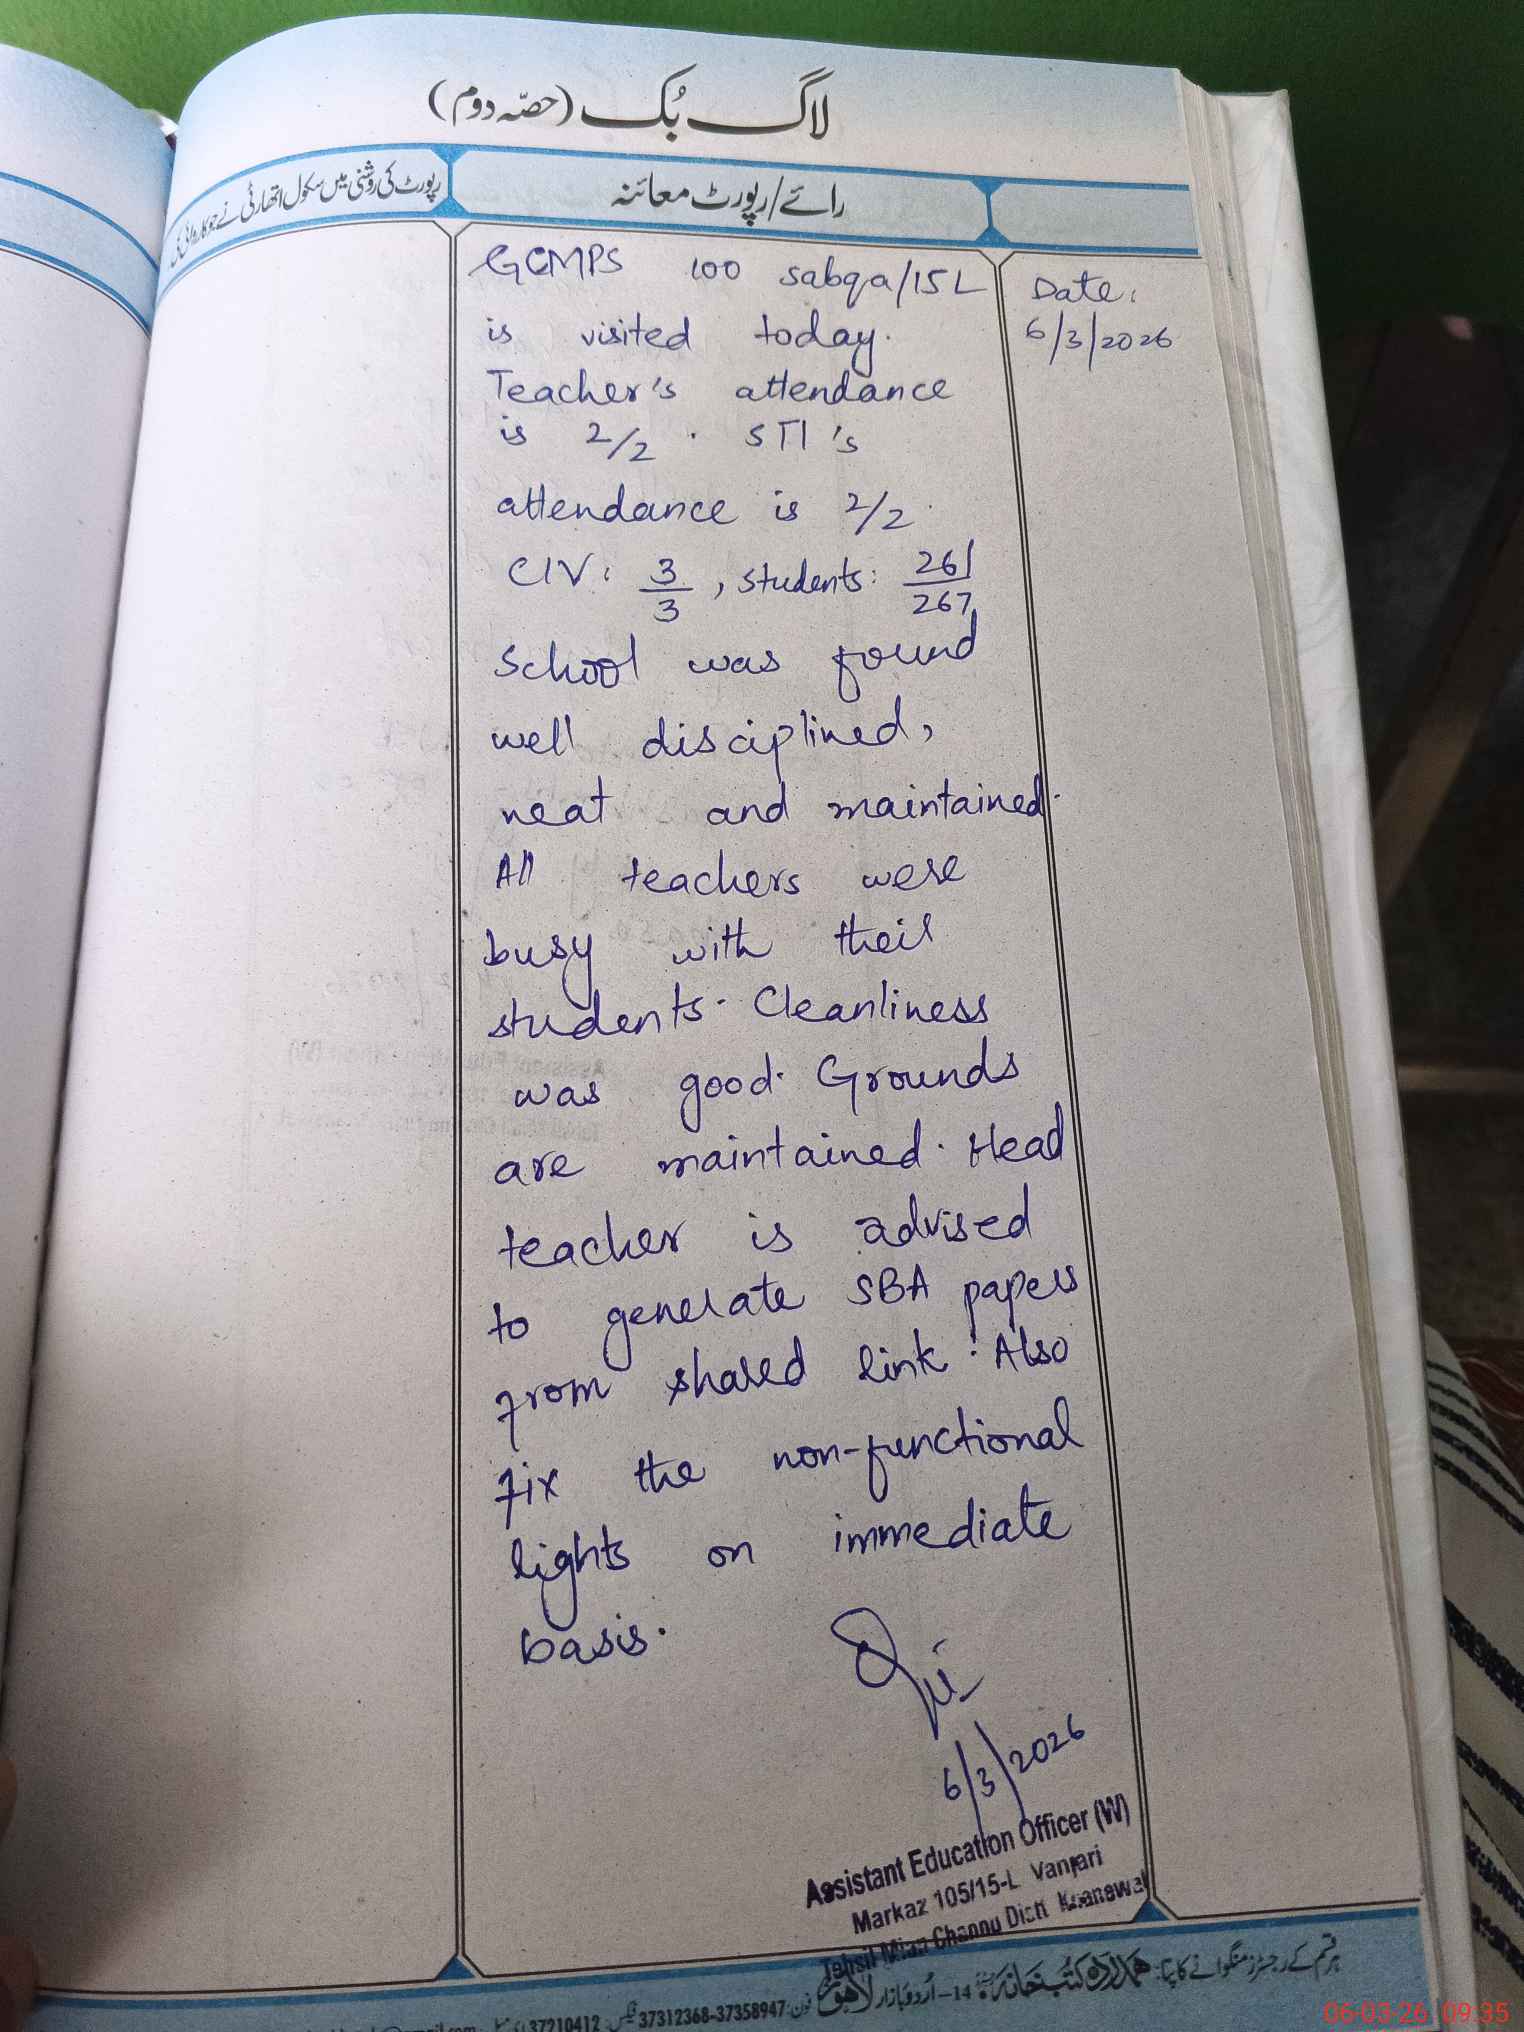 لاگ بُک (حصّہ دوم)
رائے/رپورٹ معائنہ
رپورٹ کی روشنی میں سکول اتھارٹی نے جو کاروائی کی
Date:
6/3/2026
GCMPS 100 sabqa/15L
is visited today.
Teacher's attendance
is 2/2. STI's
attendance is 2/2.
CIV: 3/3, students: 261/267
School was found
well disciplined,
neat and maintained.
All teachers were
busy with their
students. Cleanliness
was good. Grounds
are maintained. Head
teacher is advised
to generate SBA papers
from shared link. Also
fix the non-functional
lights on immediate
basis.
6/3/2026
Assistant Education Officer (W)
Markaz 105/15-L Vanjari
Tehsil Mian Channu Distt Khanewal
ہر قسم کے رجسٹرز منگوانے کا پتہ: ہمدرد کتب خانہ 14-اُردو بازار لاہور فون: 37312368-37358947 فیکس: 37210412
06-03-26 09:35